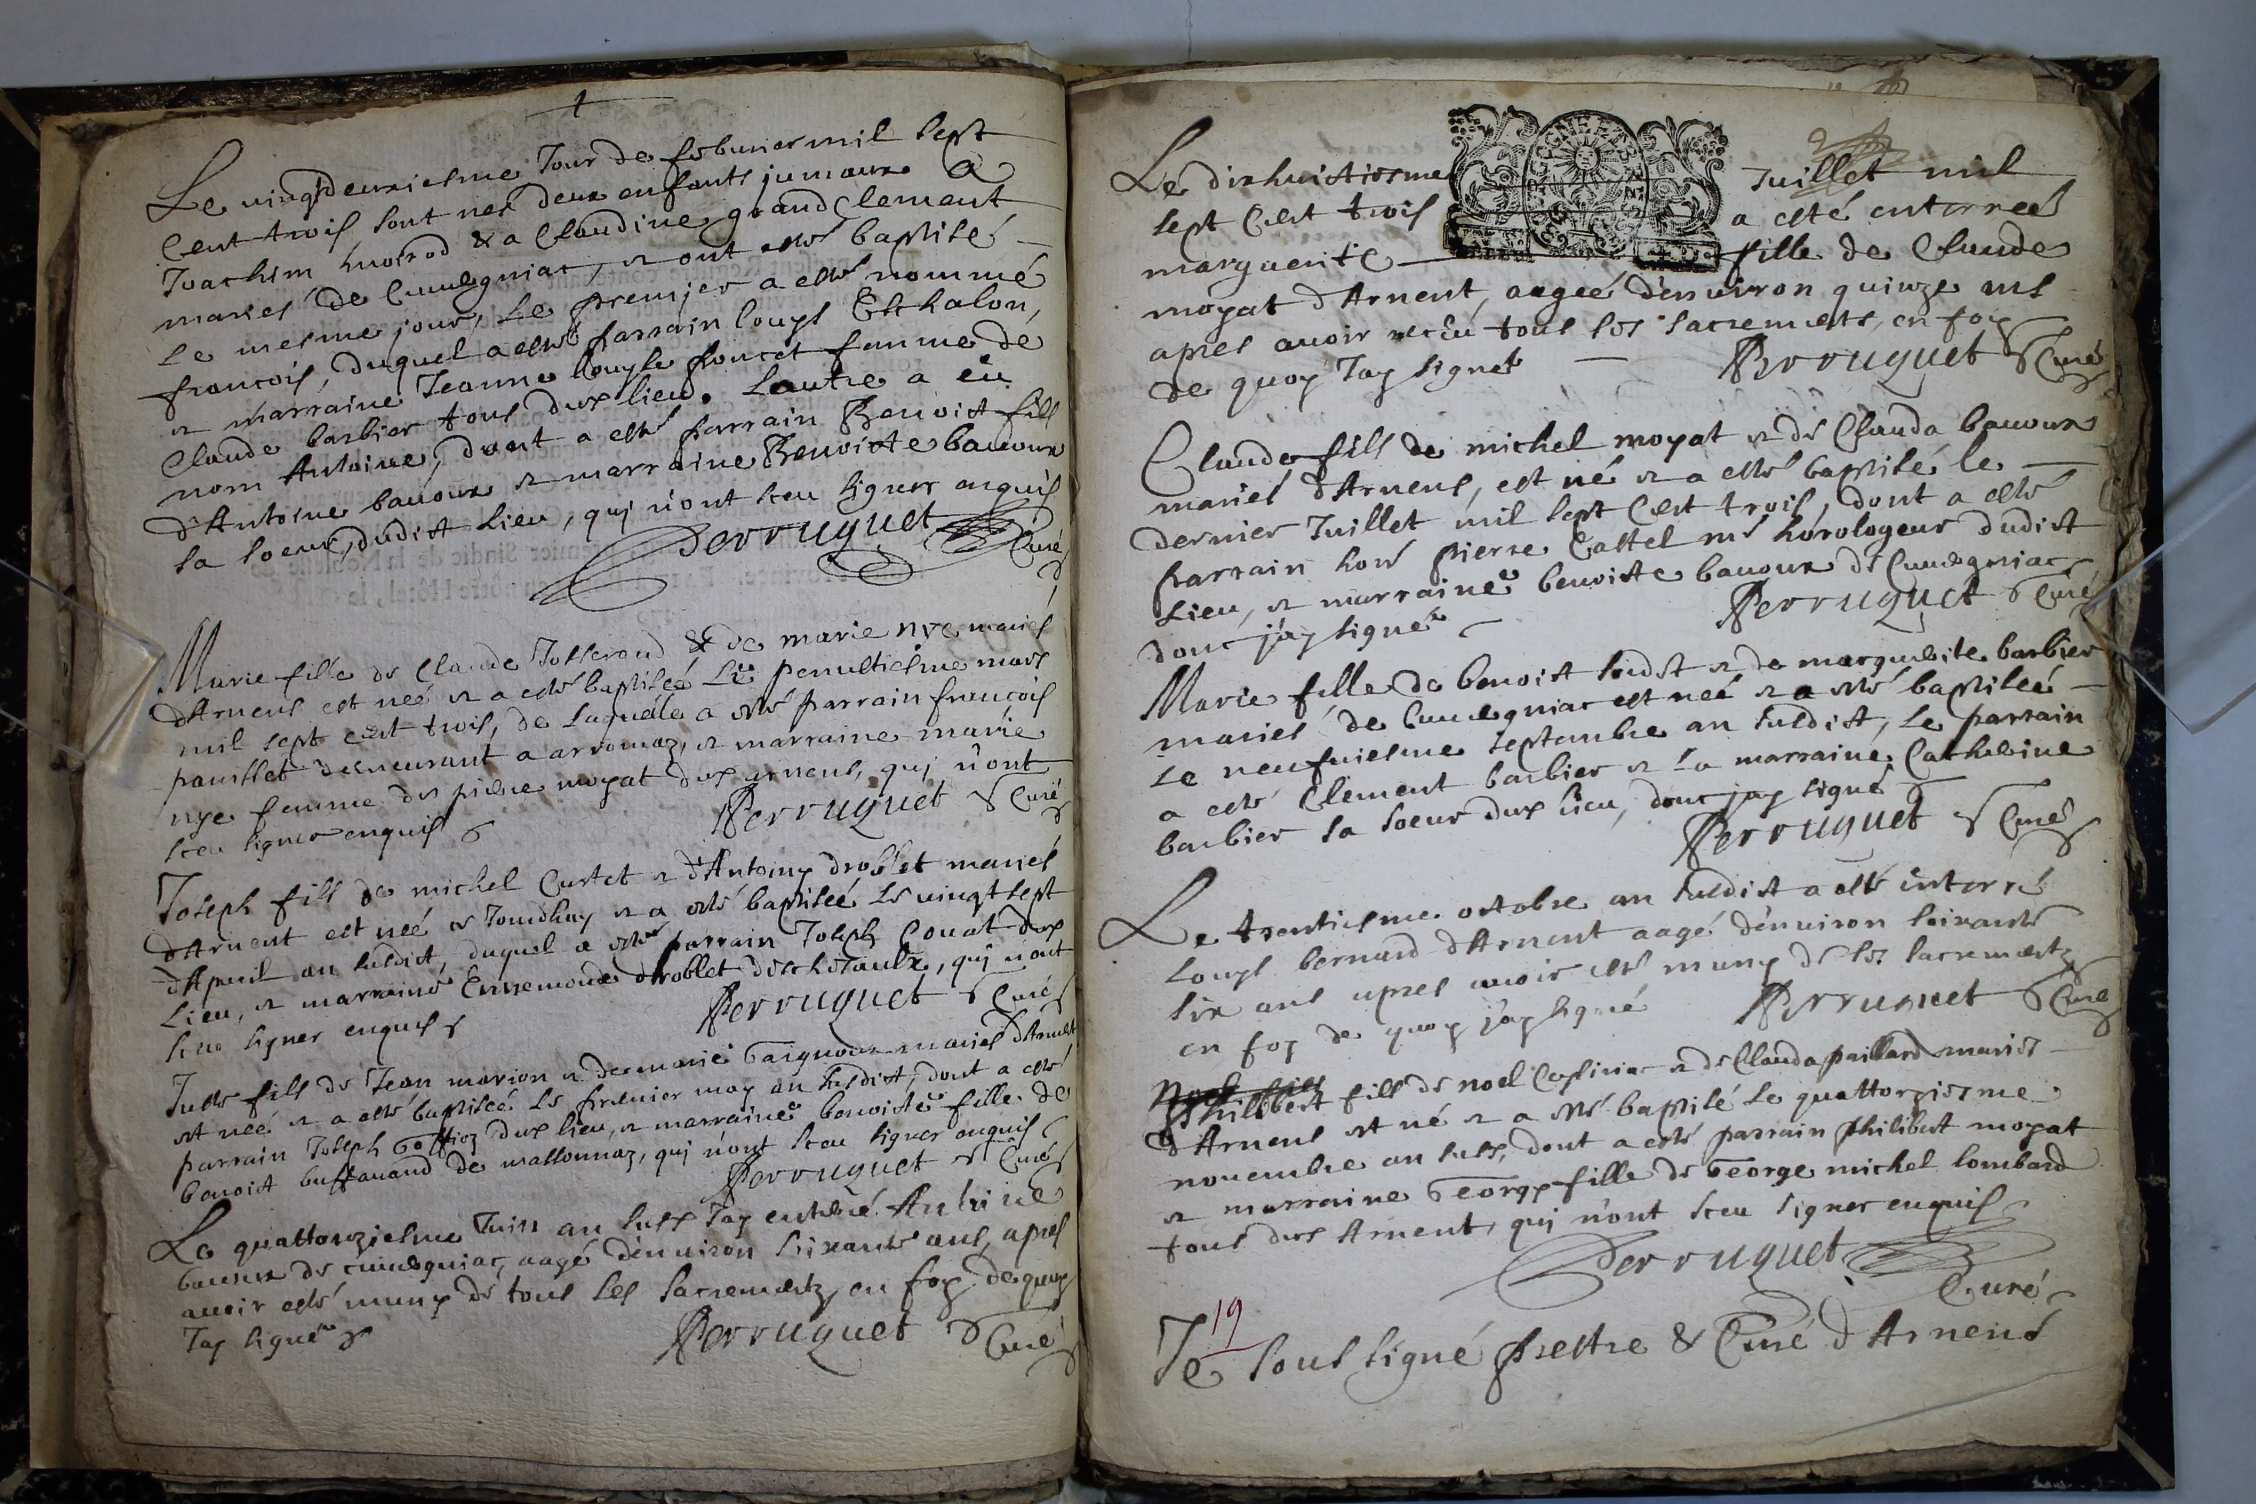 Le vingtdeuxiesme Jour de febvrier mil sept
Cent trois sont nes deux enfants jumeaux a
Joachim & a Claudine grand Clement
mariés de Cuuegniac, & ont esté baptisé
le mesme jour, Le premier a esté nommé
francois, duquel a esté parrain Louys Eschalon,
& marraine Jeanne Louyse poncet femme de
Claude barbier tous dud lieu. Lautre a eu
nom Antoine, dont a esté parrain Benoist fils
d'Antoine bauoux & marraine Benoiste bauoux
sa soeur, dudist Lieu, quj n'ont sceu signer enquis
Perruquet Curé
Marie fille de Claude Josserand & de marie nye mariés
d'Arnens est neé & a esté baptiseé Le penultiesme mars
mil sept cent trois, de laquelle a esté parrain francois
pauillet demeurant a arromaz, & marraine marie
nye femme de pierre moyat dud arnens, quj n'ont
sceu signer enquis
Perruquet Curé
Joseph fils de michel Curtet & d'Antoiny droblet mariés
d'Arnent est neé & & a esté baptiseé Le vingt sept
d'Apuril an susdist, duquel a esté parrain Joseph Conat dud
Lieu, & marraine Ennemonde droblet, quj n'ont
sceu signer enquis
Perruquet Curé
Juste fils de Jean marion & de marie mariés d'Arnent
est neé & a esté baptiseé Le premier may an susdist, dont a esté
parrain Joseph Goffioz dud lieu, & marraine benoiste fille de
benoist buffauand de massonnaz, quj n'ont sceu signer enquis
Perruquet Curé
Le quattorziesme Juin an susd Jay enterré Antoine
bauoux de cuuegniac, aagé d'enuiron soixante ans, apres
auoir esté muny de tous les sacrementz, en foy de quoy
Jay signé
Perruquet Curé
2
Le dixhuictiesme Juillet mil
sept Cent trois a esté enterreé
marguerite fille de Claude
moyat d'Arnent, aageé d'enuiron quinze ans
apres auoir receu tous les sacrements, en foy
de quoy Jay signé
Perruquet Curé
Claude fils de michel moyat & de Clauda bauoux
mariés d'Arnens, est né & a esté baptisé le
dernier Juillet mil sept Cent trois, dont a esté
parrain hon Pierre Castel me horologeur dudist
Lieu, & marraine benoiste bauoux de Cuuegniac
donc j'ay signé
Perruquet Curé
Marie fille de benoist & de marguerite barbier
mariés de Cuuegniac est neé & a esté baptiseé
Le neufuiesme septembre an susdist, Le parrain
a esté Clement barbier & La marraine Catherine
barbier sa soeur dud lieu, donc jay signé
Perruquet Curé
Le trentiesme octobre an susdist a esté enterré
Louys bernard d'Arnent aagé d'enuiron soixante
six ans apres auoir esté muny de ses sacrementz
en foy de quoy j'ay signé
Perruquet Curé
Philibert fils de noel & de Clauda paillard mariés
d'Arnens est né & a esté baptisé Le quattorziesme
nouembre an susd, dont a esté parrain philibert moyat
& marraine George fille de George michel lombard
tous dud Arnent, quj n'ont sceu signer enquis
Perruquet
Curé
19
Je soussigné prestre & Curé d'Arnens